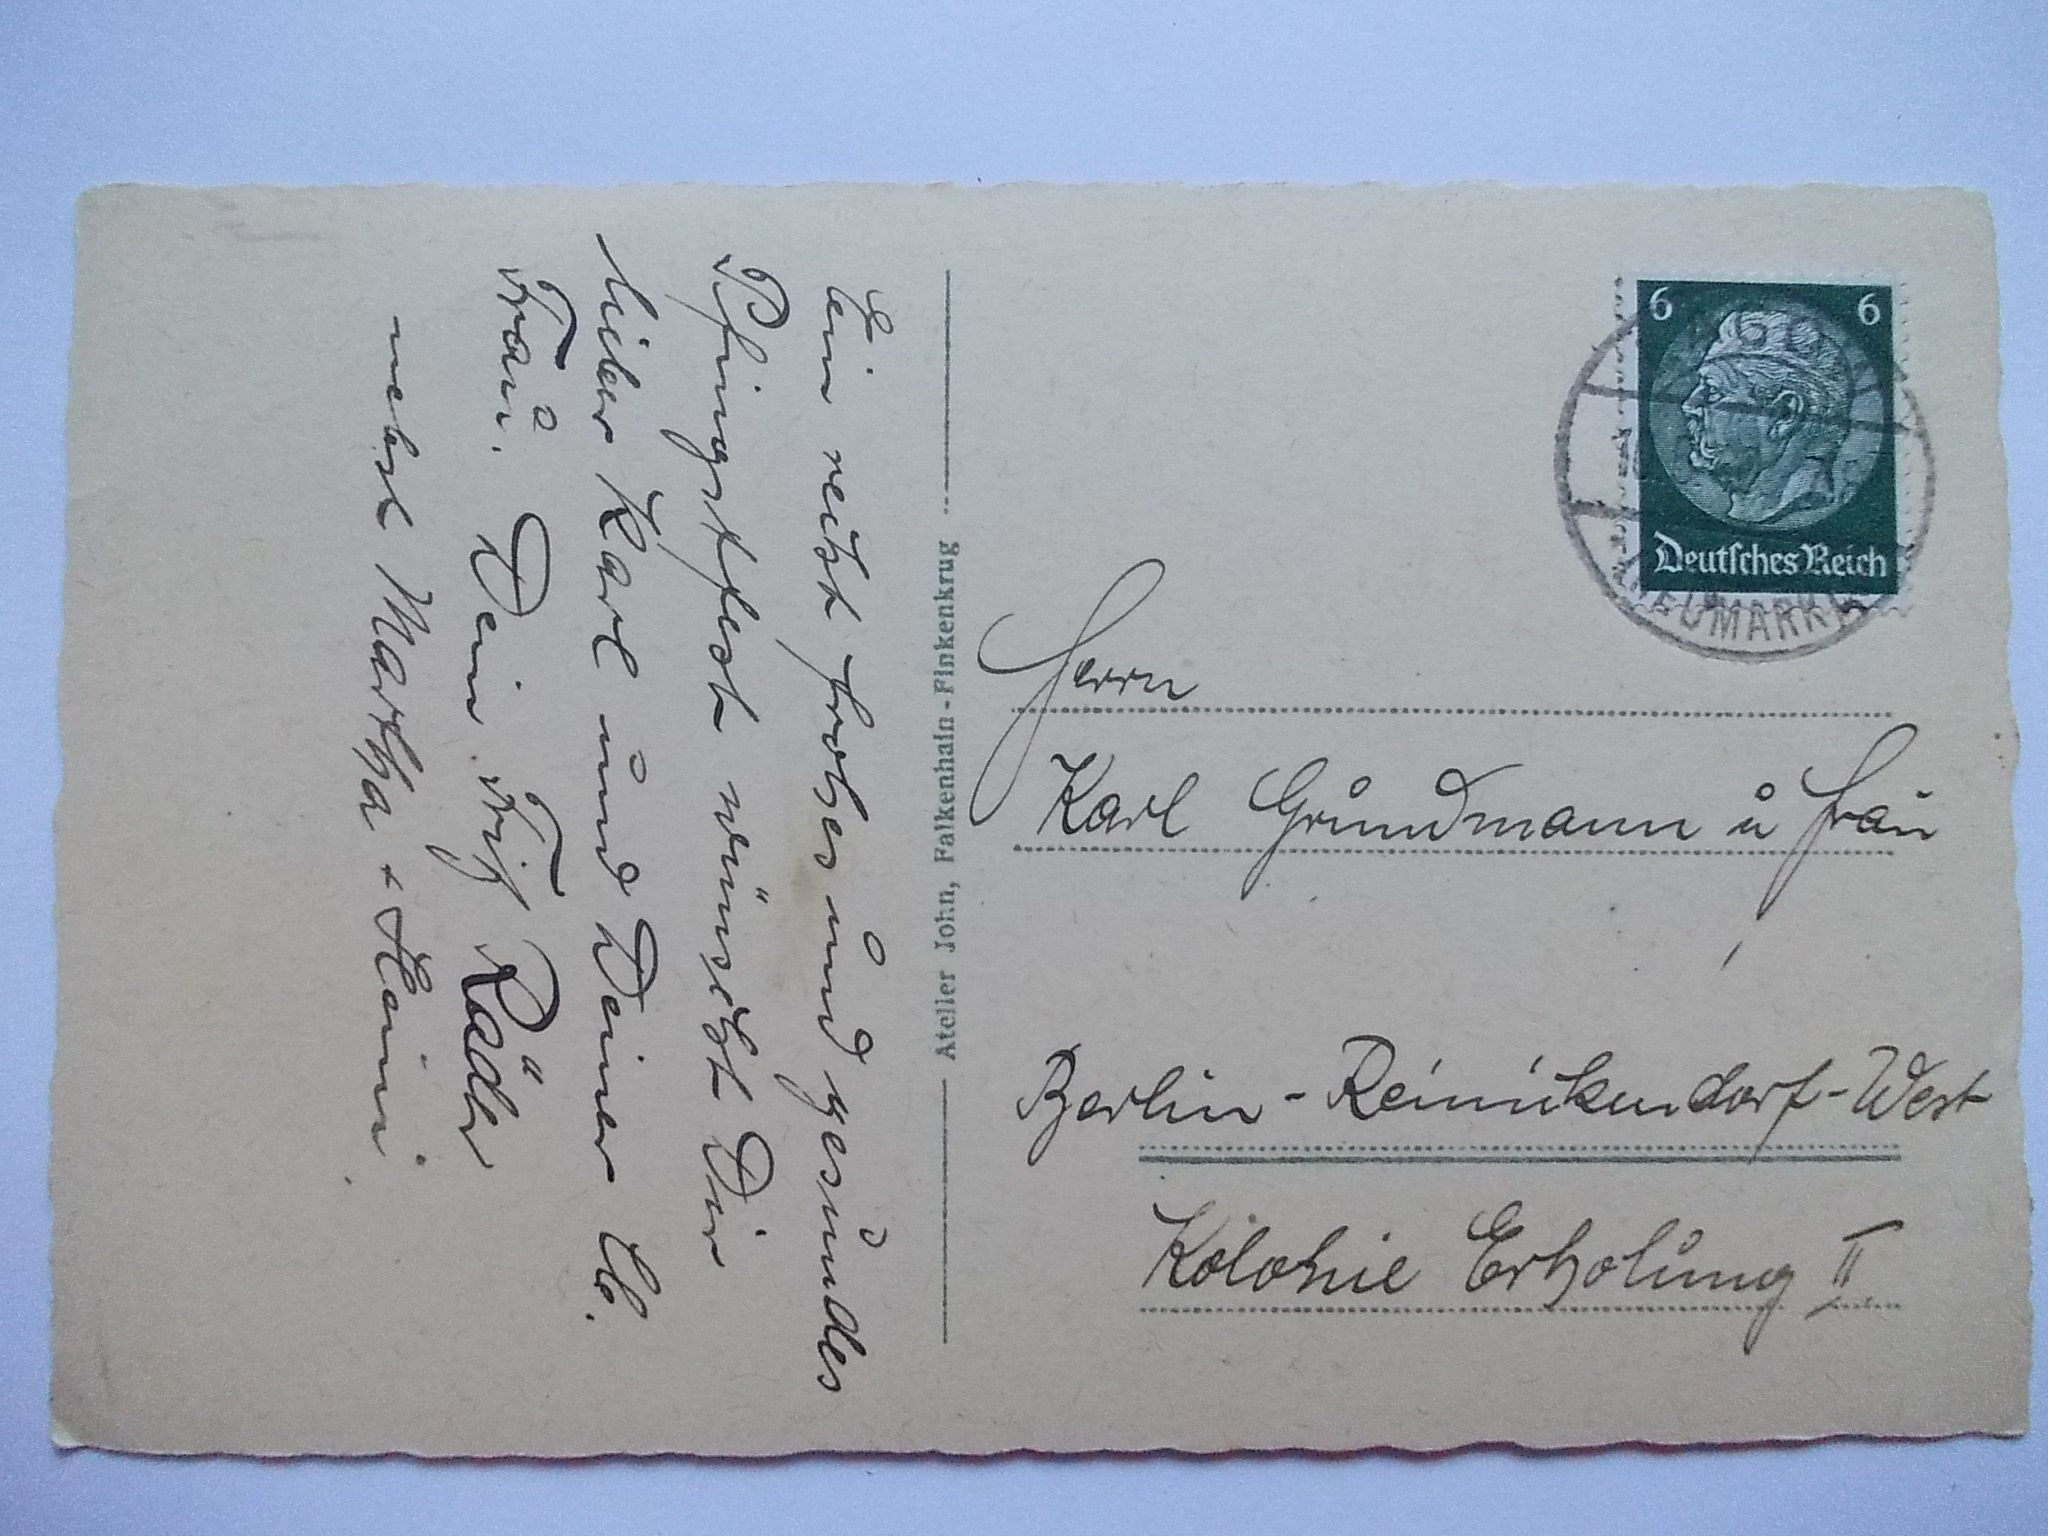 Ein recht frohes und gesundes
Pfingstfest wünscht Dir
lieber Karl und Deiner lb.
Frau. Dein Fritz Räder
nebst Martha + Heini.
Atelier John, Falkenhain-Finkenkrug
6 6
Deutsches Reich
(NEUMARK)
Herrn
Karl Grundmann u Frau
Berlin-Reinickendorf-West
Kolonie Erholung II